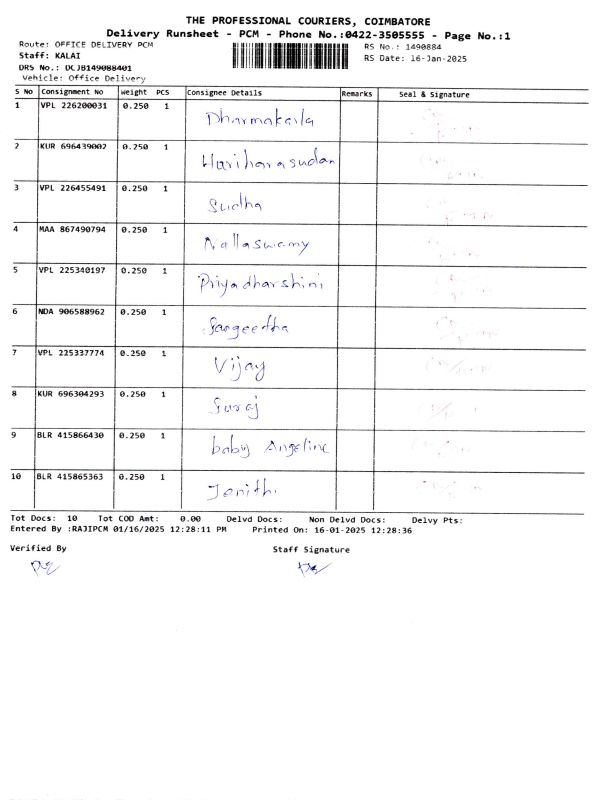 THE PROFESSIONAL COURIERS, COIMBATORE
Delivery Runsheet - PCM - Phone No.:0422-3505555 - Page No.:1
Route: OFFICE DELIVERY PCM
Staff: KALAI
DRS No.: DCJB149088401
Vehicle: Office Delivery
RS No.: 1490884
RS Date: 16-Jan-2025
S No Consignment No Weight PCS Consignee Details Remarks Seal & Signature
1 VPL 226200031 0.250 1 Dharmakaila
2 KUR 696439002 0.250 1 Hariharasudan
3 VPL 226455491 0.250 1 Sudha
4 MAA 867490794 0.250 1 Nallaswamy
5 VPL 225340197 0.250 1 Priyadharshini
6 NDA 906588962 0.250 1 Sangeetha
7 VPL 225337774 0.250 1 Vijay
8 KUR 696304293 0.250 1 Suraj
9 BLR 415866430 0.250 1 baby Angeline
10 BLR 415865363 0.250 1 Jenithi
Tot Docs: 10 Tot COD Amt: 0.00 Delvd Docs: Non Delvd Docs: Delvy Pts:
Entered By :RAJIPCM 01/16/2025 12:28:11 PM Printed On: 16-01-2025 12:28:36
Verified By Staff Signature